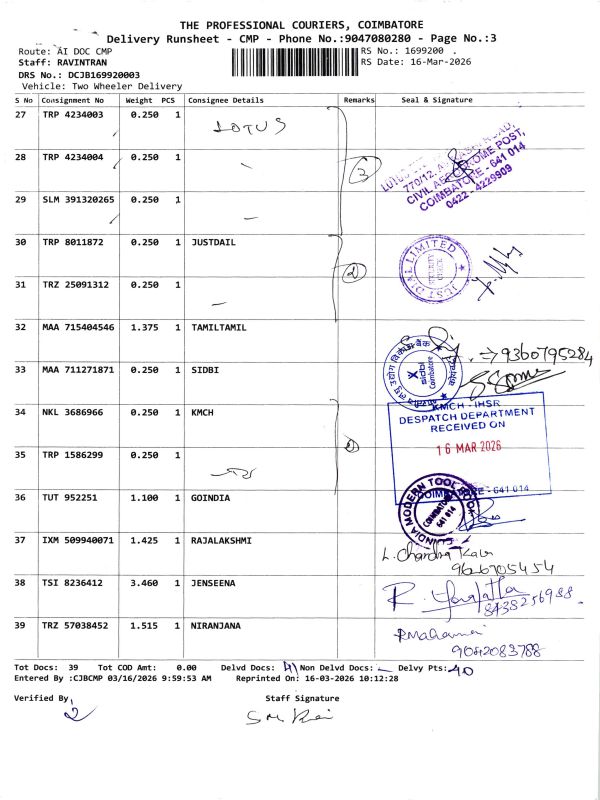 THE PROFESSIONAL COURIERS, COIMBATORE
Delivery Runsheet - CMP - Phone No.:9047080280 - Page No.:3
Route: AI DOC CMP
RS No.: 1699200
Staff: RAVINTRAN
RS Date: 16-Mar-2026
DRS No.: DCJB169920003
Vehicle: Two Wheeler Delivery
S No Consignment No Weight PCS Consignee Details Remarks Seal & Signature
27 TRP 4234003 0.250 1 LOTUS
28 TRP 4234004 0.250 1
3
770/12,
CIVIL AERODROME POST,
COIMBATORE - 641 014
0422 - 4229909
29 SLM 391320265 0.250 1
30 TRP 8011872 0.250 1 JUSTDAIL
2
JUST DIAL LIMITED
SECURITY CHECK
31 TRZ 25091312 0.250 1
32 MAA 715404546 1.375 1 TAMILTAMIL
9360795284
33 MAA 711271871 0.250 1 SIDBI
sidbi
Coimbatore
34 NKL 3686966 0.250 1 KMCH
KMCH - IHSR
DESPATCH DEPARTMENT
RECEIVED ON
16 MAR 2026
COIMBATORE - 641 014
35 TRP 1586299 0.250 1
36 TUT 952251 1.100 1 GOINDIA
INDIA MODERN TOOL ROOM
COIMBATORE
641 014
37 IXM 509940071 1.425 1 RAJALAKSHMI
9626705454
38 TSI 8236412 3.460 1 JENSEENA
8438256988
39 TRZ 57038452 1.515 1 NIRANJANA
9042083788
Tot Docs: 39 Tot COD Amt: 0.00 Delvd Docs: Non Delvd Docs: Delvy Pts: 40
Entered By :CJBCMP 03/16/2026 9:59:53 AM Reprinted On: 16-03-2026 10:12:28
Verified By Staff Signature